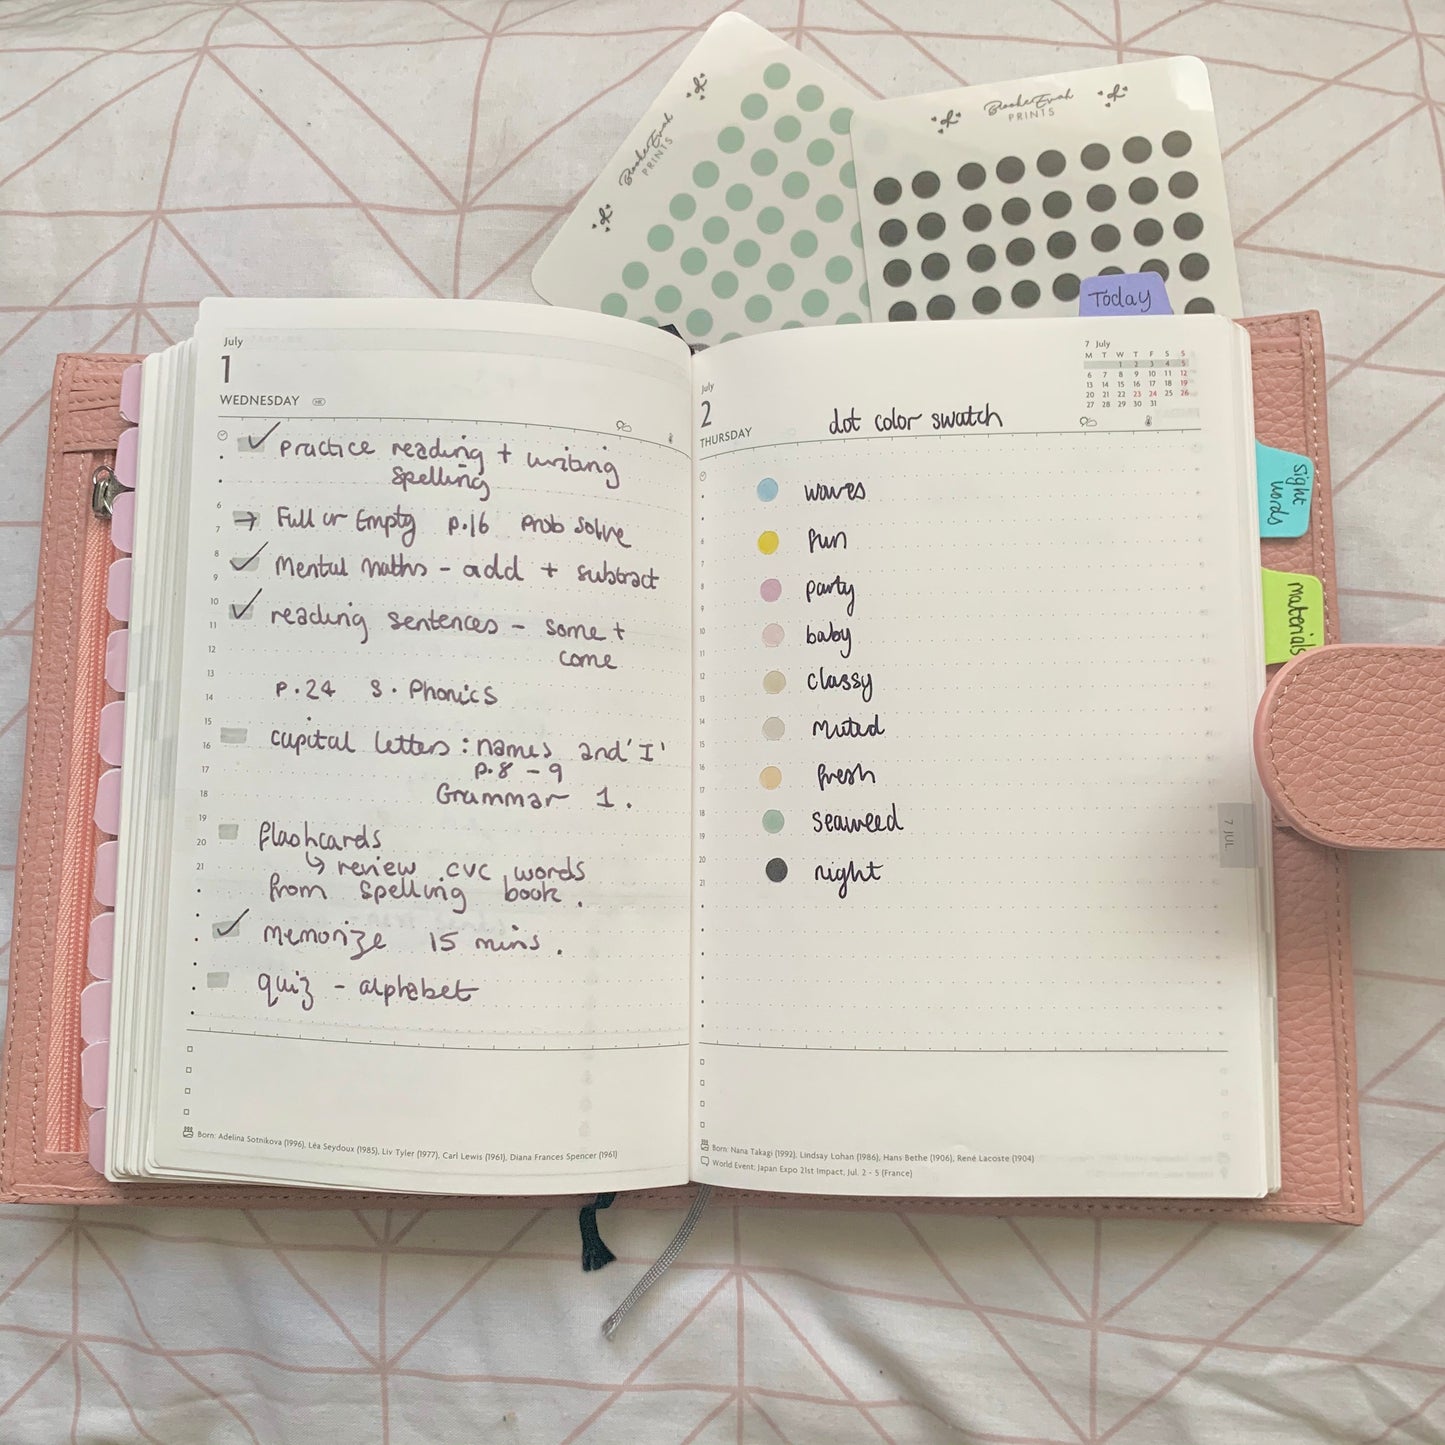 BrookeEvah
PRINTS
BrookeEvah
PRINTS
Today
July
1
WEDNESDAY HK
practice reading + writing
spelling
6
→ Full or Empty p.16 prob solve
7
8
Mental maths - add + subtract
9
10
reading sentences - some +
11
come
12
13
p.24 S. Phonics
14
15
capital letters : names and 'I'
16
p.8 - 9
17
Grammar 1.
18
19
flashcards
20
↳ review cvc words
21
from spelling book.
memorize 15 mins.
quiz - alphabet
Born: Adelina Sotnikova (1996), Léa Seydoux (1985), Liv Tyler (1977), Carl Lewis (1961), Diana Frances Spencer (1961)
July
2
THURSDAY
dot color swatch
7 July
M T W T F S S
1 2 3 4 5
6 7 8 9 10 11 12
13 14 15 16 17 18 19
20 21 22 23 24 25 26
27 28 29 30 31
waves
6
fun
7
8
party
9
10
baby
11
12
classy
13
14
muted
15
16
fresh
17
18
seaweed
19
20
night
21
Born: Nana Takagi (1992), Lindsay Lohan (1986), Hans Bethe (1906), René Lacoste (1904)
World Event: Japan Expo 21st Impact, Jul. 2 - 5 (France)
sight
words
materials
7 JUL